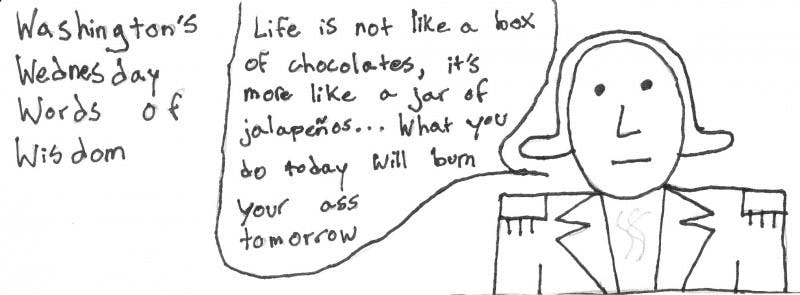 Washington's
Wednesday
Words of
Wisdom
Life is not like a box
of chocolates, it's
more like a jar of
jalapeños... What you
do today will burn
your ass
tomorrow